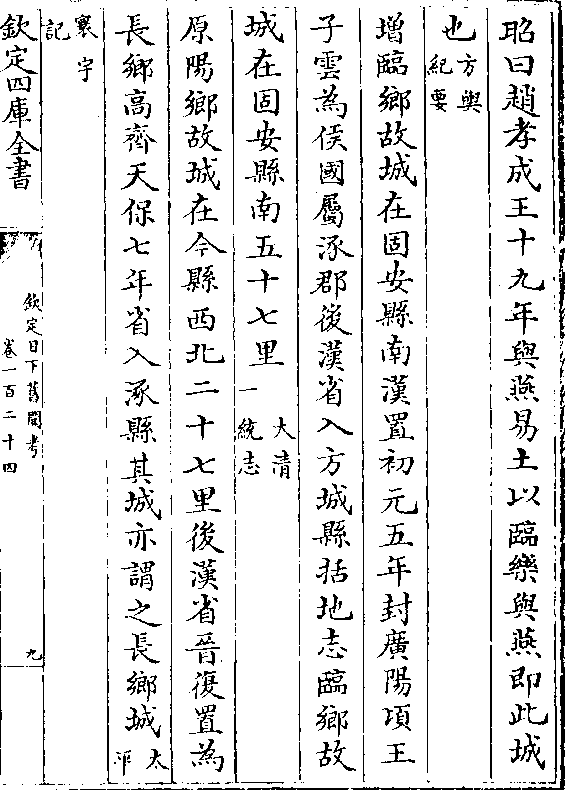 昭曰趙孝成王十九年與燕易土以臨樂與燕即此城
也方輿紀要
增臨鄉故城在固安縣南漢置初元五年封廣陽項王
子雲為侯國屬涿郡後漢省入方城縣括地志臨鄉故
城在固安縣南五十七里大清一統志
原陽鄉故城在今縣西北二十七里後漢省晉復置為
長鄉高齊天保七年省入涿縣其城亦謂之長鄉城太平
寰宇記
欽定四庫全書
欽定日下舊聞考
卷一百二十四
九